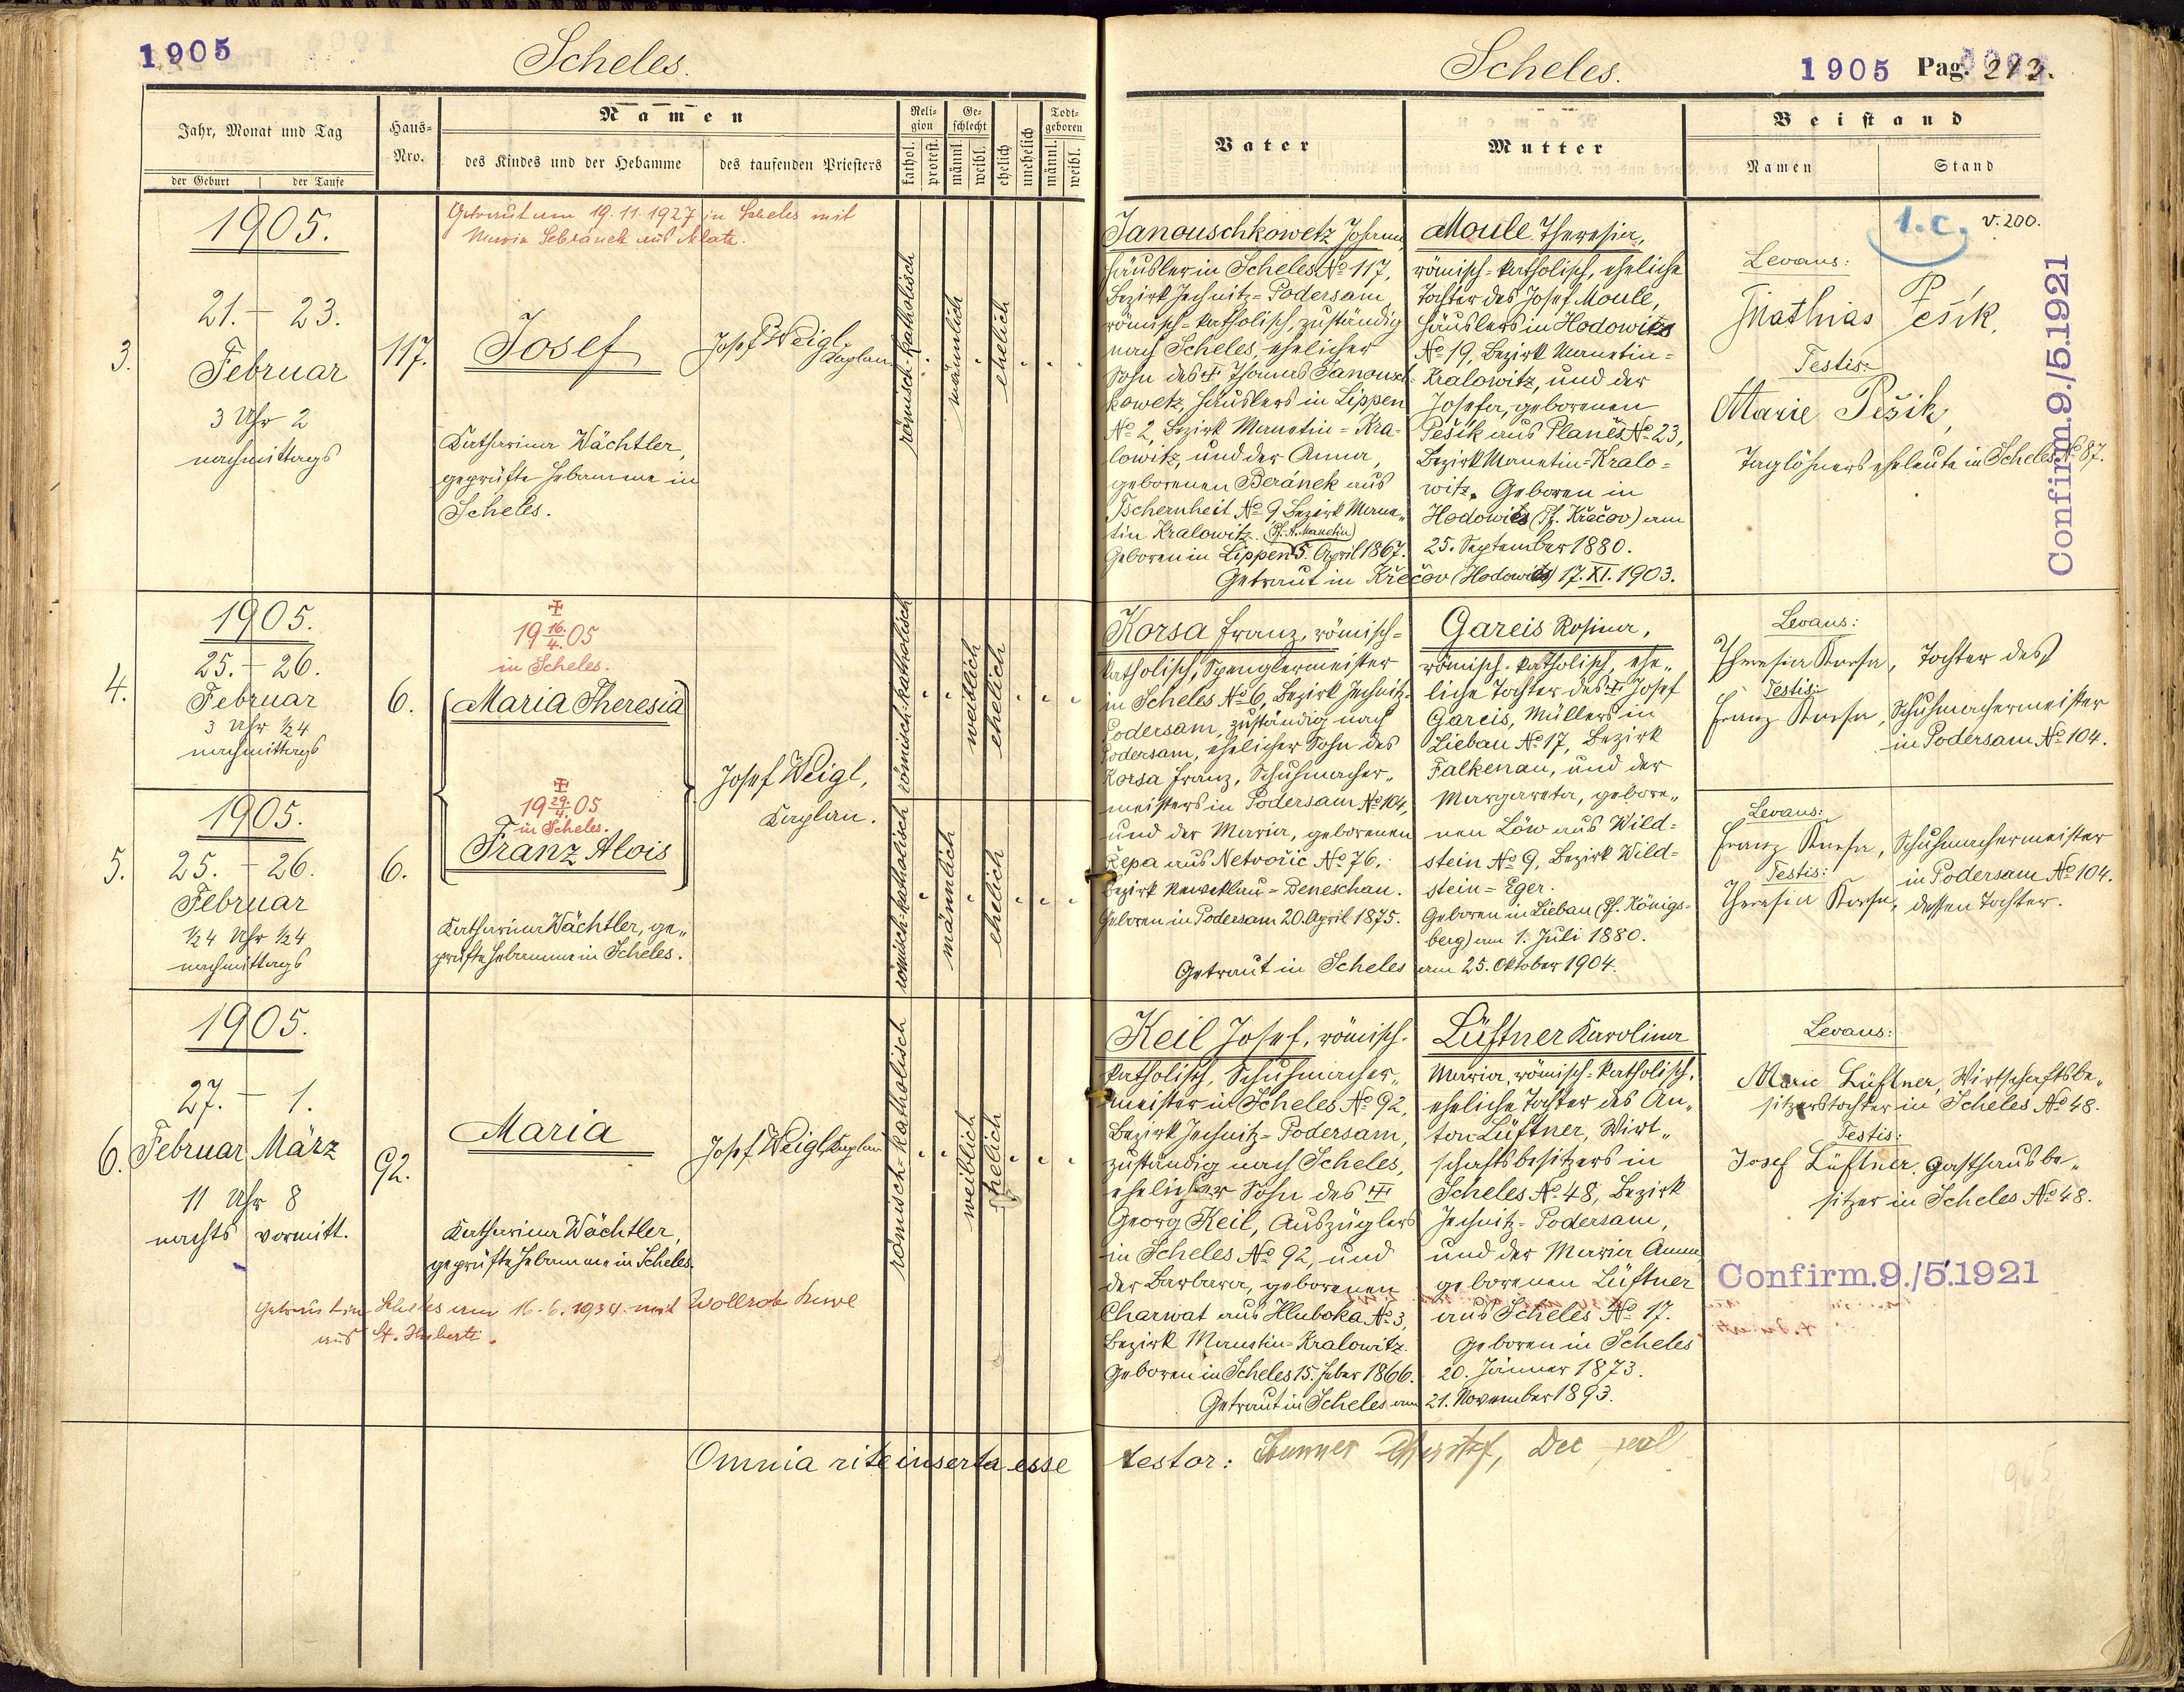 1905
Scheles.
Jahr, Monat und Tag
der Geburt
der Taufe
Haus-
Nro.
Namen
des Kindes und der Hebamme
des taufenden Priesters
Reli-
gion
kathol.
protest.
Ge-
schlecht
männl.
weibl.
ehelich
unehelich
Todt-
geboren
männl.
weibl.
Getraut am 19.11.1927 in Scheles mit
Maria
3.
1905.
21. - 23.
Februar
3 Uhr 2
nachmittags
117.
Josef
Katharina Wächtler,
geprüfte Hebamme in
Scheles.
Josef Weigl,
Kaplan
römisch-katholisch
männlich
ehelich
4.
1905.
25. - 26.
Februar
3 Uhr ½4
nachmittags
6.
19 16./4. 05
in Scheles.
Maria Theresia
römisch-katholisch
weiblich
ehelich
5.
1905.
25. - 26.
Februar
½4 Uhr ½4
nachmittags
6.
19 29./4. 05
in Scheles.
Franz Alois
Katharina Wächtler, ge„
prüfte Hebamme in Scheles.
Josef Weigl,
Kaplan.
römisch-katholisch
männlich
ehelich
6.
1905.
27. - 1.
Februar März
11 Uhr 8
nachts vormitt.
92.
Maria
Katharina Wächtler,
geprüfte Hebamme in Scheles.
Josef Weigl, Kaplan
römisch-katholisch
weiblich
ehelich
Getraut in Scheles am 16.6.1934 mit
aus St. Huberti.
Omnia rite inserta esse
Scheles.
1905 Pag. 213.
Vater
Mutter
Beistand
Namen
Stand
Janouschkowetz Johann,
Häusler in Scheles No 117,
Bezirk Jechnitz-Podersam,
römisch-katholisch, zuständig
nach Scheles, ehelicher
Sohn des Thomas Janousch-
kowetz, Häuslers in Lippen
No 2, Bezirk Manetin-Kra-
lowitz, und der Anna,
geborenen Beránek aus
Tschernheit No 9 Bezirk Mane„
tin Kralowitz. (Pf. A. Manetin)
Geboren in Lippen 5. April 1867.
Moule Theresia,
römisch-katholisch, eheliche
Tochter des Josef Moule,
Häuslers in Hodowitz
No 19, Bezirk Manetin-
Kralowitz, und der
Josefa, geborenen
Pešik aus Planĕs No 23,
Bezirk Manetin-Kralo-
witz. Geboren in
Hodowitz (Pf. Křečov) am
25. September 1880.
Getraut in Křečov (Hodowitz) 17. XI. 1903.
1.c. v. 200.
Levans:
Mathias Pešik,
Testis:
Marie Pešik,
Taglöhnerseheleute in Scheles No 87.
Confirm.9./5.1921
Korsa Franz, römisch-
katholisch, Spenglermeister
in Scheles No 6, Bezirk Jechnitz-
Podersam, zuständig nach
Podersam, ehelicher Sohn des
Korsa Franz, Schuhmacher„
meisters in Podersam No 104,
und der Maria, geborenen
Řepa aus Netvořic No 76,
Bezirk Neweklau-Beneschau.
Geboren in Podersam 20. April 1875.
Gareis Rosina,
römisch-katholisch, ehe„
liche Tochter des Josef
Gareis, Müllers in
Liebau No 17, Bezirk
Falkenau, und der
Margareta, gebore„
nen Löw aus Wild-
stein No 9, Bezirk Wild-
stein-Eger.
Geboren in Liebau (Pf. Königs-
berg) am 1. Juli 1880.
Getraut in Scheles am 25. Oktober 1904.
Levans:
Theresia Korsa, Tochter des
Testis:
Franz Korsa, Schuhmachermeister
in Podersam No 104.
Levans:
Franz Korsa, Schuhmachermeister
in Podersam No 104.
Testis:
Theresia Korsa, dessen Tochter.
Keil Josef, römisch-
katholisch, Schuhmacher„
meister in Scheles No 92,
Bezirk Jechnitz-Podersam,
zuständig nach Scheles,
ehelicher Sohn des
Georg Keil, Auszüglers
in Scheles No 92, und
der Barbara, geborenen
Charwat aus Hluboka No 3,
Bezirk Manetin-Kralowitz.
Geboren in Scheles 15. Feber 1866.
Lüftner Karolina
Maria, römisch-katholisch,
eheliche Tochter des An„
ton Lüftner, Wirt„
schaftsbesitzers in
Scheles No 48, Bezirk
Jechnitz-Podersam,
und der Maria Anna,
geborenen Lüftner
aus Scheles No 17.
Geboren in Scheles
20. Jänner 1873.
Getraut in Scheles am 21. November 1893.
Levans:
Marie Lüftner, Wirtschaftsbe„
sitzerstochter in Scheles No 48.
Testis:
Josef Lüftner, Gasthausbe„
sitzer in Scheles No 48.
Confirm.9./5.1921
testor: